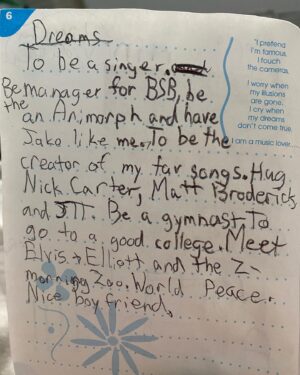 6
Dreams
To be a singer.
Be manager for BSB, be
the an Animorph and have
Jake like me. To be the
creator of my fav songs. Hug
Nick Carter, Matt Broderick
and JTT. Be a gymnast To
go to a good college. Meet
Elvis → Elliott and the Z-
morning Zoo. World Peace.
Nice boyfriend.
"I pretend
I'm famous.
I touch
the cameras.
I worry when
my illusions
are gone.
I cry when
my dreams
don't come true.
I am a music lover.